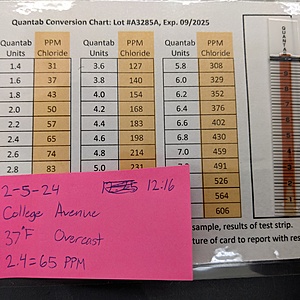 Quantab Conversion Chart: Lot #A3285A, Exp. 09/2025
Quantab Units PPM Chloride Quantab Units PPM Chloride Quantab Units PPM Chloride
1.4 31 3.6 127 5.8 308
1.6 37 3.8 140 6.0 329
1.8 43 4.0 154 6.2 352
2.0 50 4.2 168 6.4 376
2.2 57 4.4 183 6.6 402
2.4 65 4.6 198 6.8 430
2.6 74 4.8 214 7.0 459
2.8 83 5.0 231 491
526
564
606
sample, results of test strip.
ture of card to report with res
QUANTAB
2-5-24 12:16
College Avenue
37°F Overcast
2.4=65 PPM